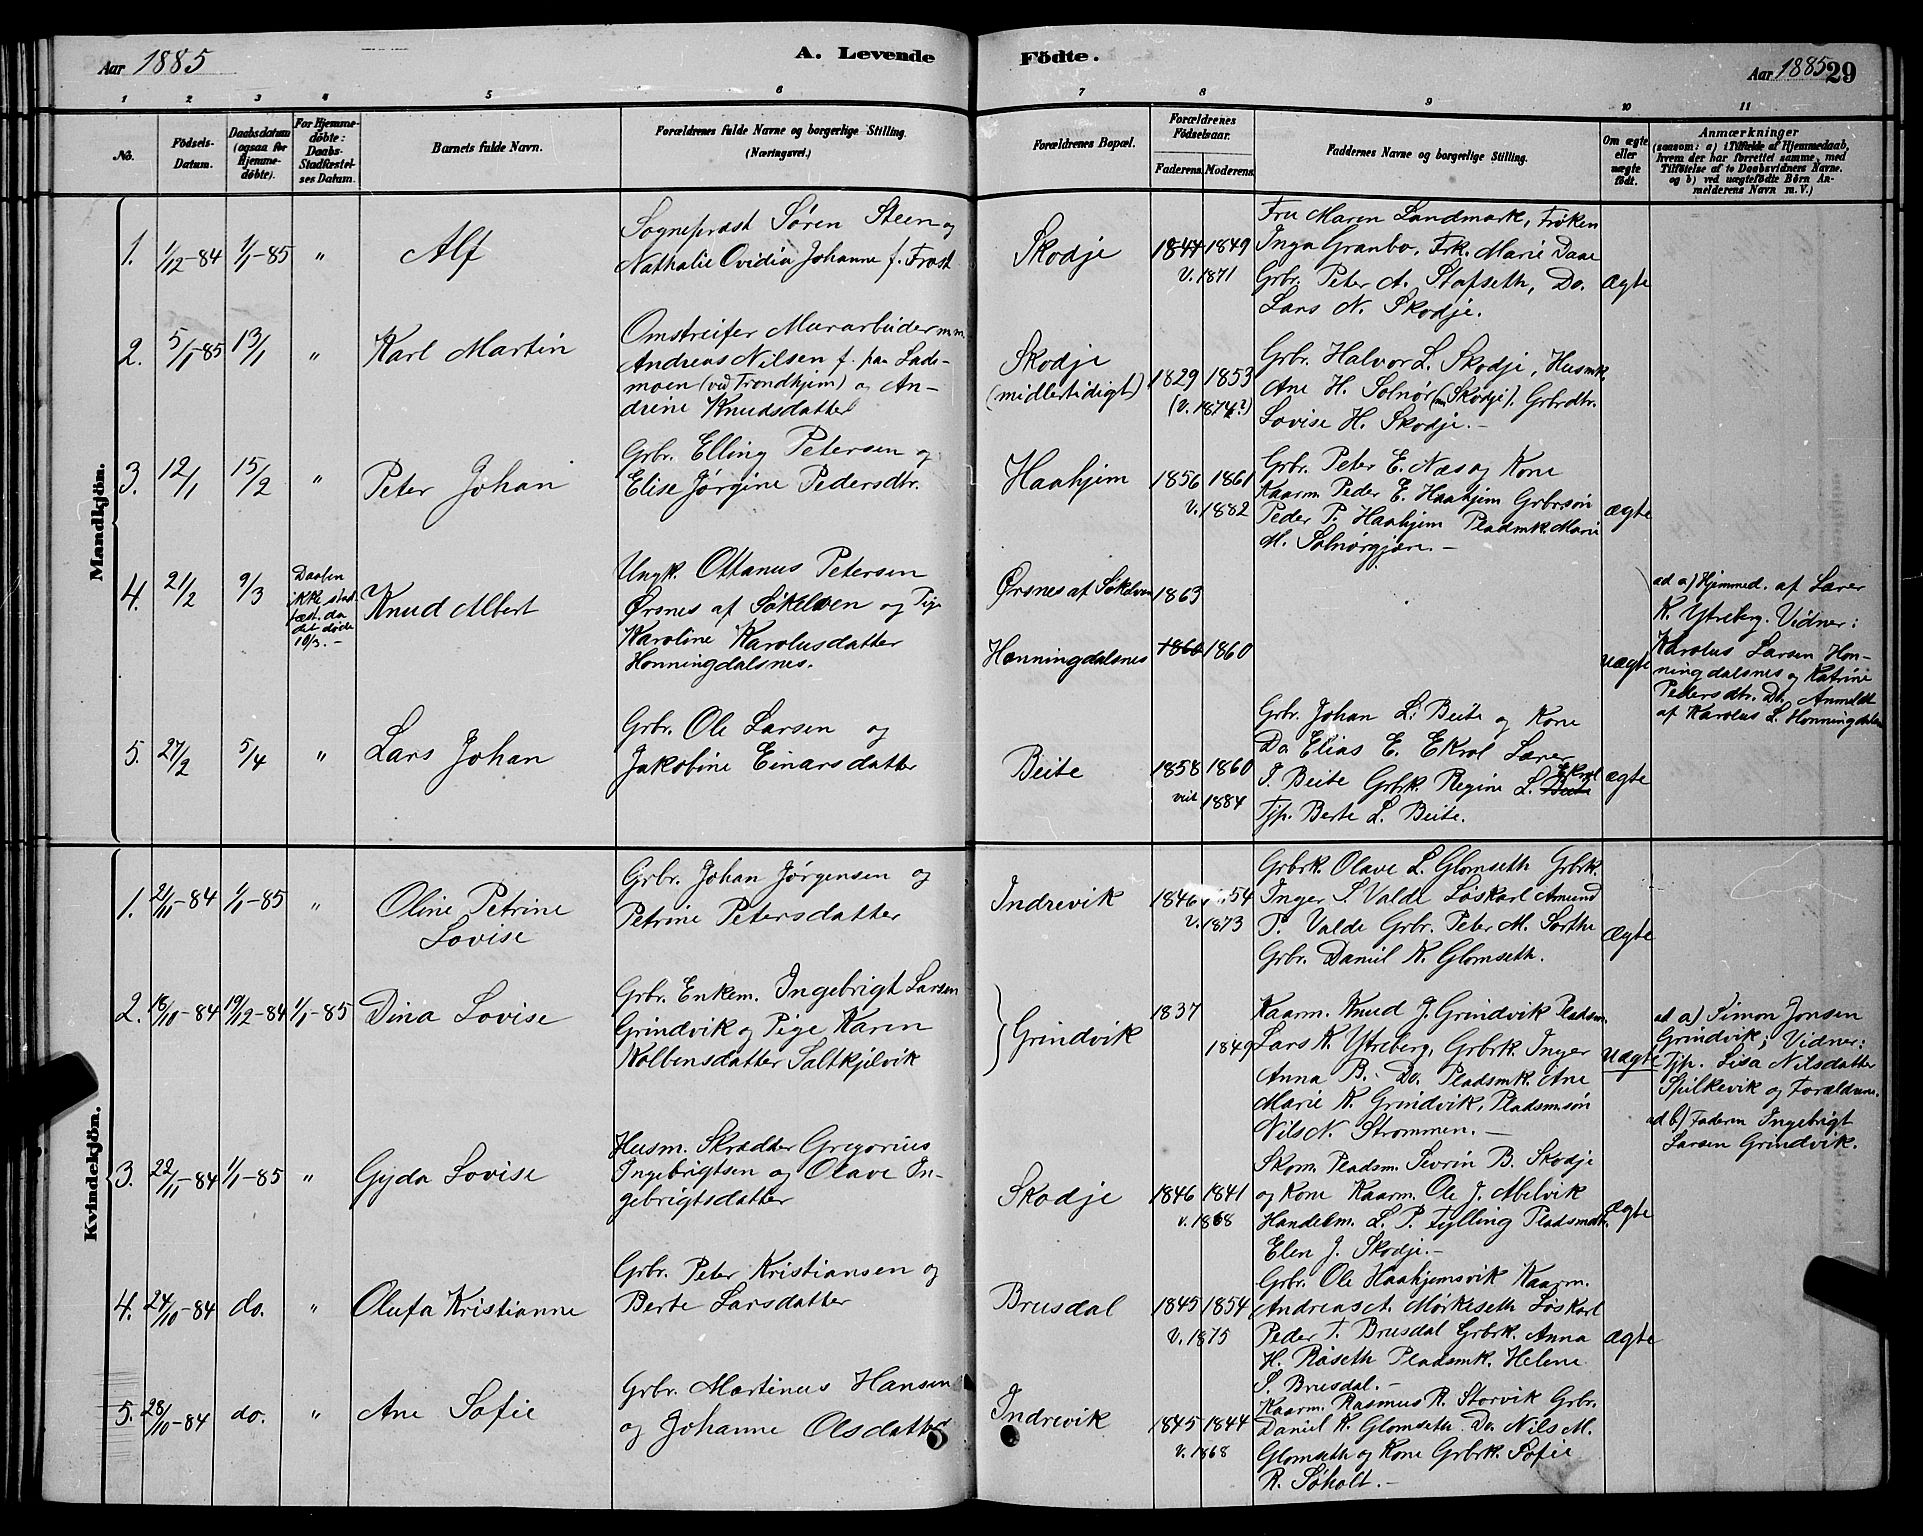 Aar 1885
A. Levende
Födte.
Aar 1885 29
1 2 3 4 5 6 7 8 9 10 11
No.
Födsels-
Datum.
Daabsdatum
(ogsaa for
Hjemme-
døbte).
For Hjemme-
døbte:
Daabs-
Stadfæstel-
ses Datum.
Barnets fulde Navn.
Forældrenes fulde Navne og borgerlige Stilling.
(Næringsvei.)
Forældrenes Bopæl.
Forældrenes
Födselsaar.
Faderens. Moderens.
Faddernes Navne og borgerlige Stilling.
Om ægte
eller
uægte
födt.
Anmærkninger
(saasom: a) i Tilfælde af Hjemmedaab,
hvem der har forrettet samme, med
Tilföielse af to Daabsvidners Navne.
og b) ved uægtefödte Börn An-
melderens Navn m. V.)
Mandkjön.
1. 1/12-84 1/1-85 " Alf
Sogneprest Søren Steen og
Nathalie Ovidia Johanne f. Frost
Skodje
1844 1849
V. 1871
Fru Maren Landmark, Frøken
Inga Granbo, Frk. Marie Daae
Grbr. Peter A. Stafseth, Do.
Lars N. Skodje.
ægte
2. 5/1-85 13/1 " Karl Martin
Omstreifer Murarbeider m.m.
Andreas Nilsen f. paa Lade-
moen (ved Trondhjem) og An-
drine Knudsdatter
Skodje
(midlertidigt)
1829 1853
(V. 1874?)
Grbr. Halvor L. Skodje, Husmk.
Ane H. Solnør (nu Skodje). Grbrdtr.
Lovise H. Skodje.-
3. 12/1 15/2 " Peter Johan
Grbr. Elling Petersen og
Elise Jørgine Pedersdtr.
Haahjem
1856 1861
V. 1882
Grbr. Peter E. Næs og Kone
Kaarm. Peder E. Haahjem Grbrsøn
Peder P. Haahjem Pladsmk. Marie
M. Solnørgjøre.-
ægte
4. 21/2 9/3
Daaben
ikke stad-
fæst. da
det døde
10/3.-
Knud Albert
Ungk. Ottanus Petersen
Ørsnes af Søkelven og Pige
Karoline Karolusdatter
Honningdalsnes.
Ørsnes af Søkelven 1863
Honningdalsnes 1860 1860
uægte
ad a) Hjemmed. af Lærer
K. Ytreberg. Vidner:
Karolus Larsen Hon-
ningdalsnes og Katrine
Pedersdtr. Do. Anmeldt
af Karolus L. Honningdalsn.
5. 27/2 5/4 " Lars Johan
Grbr. Ole Larsen og
Jakobine Einarsdatter
Beite
1858 1860
viet 1884
Grbr. Johan L. Beite og Kone
Do Elias E. Ekrol Lærer
P. Beite Grbrk. Regine L. Beite Ekrol
Tjp. Berte L. Beite.
ægte
Kvindekjön.
1. 21/11-84 1/1-85 " Oline Petrine
Lovise
Grbr. Johan Jørgensen og
Petrine Petersdatter
Indrevik
1846 1854
V. 1873
Grbrk. Olave L. Glomseth Grbrk.
Inger S Valde Løskarl Amund
P. Valde Grbr. Peter M. Sorthe
Grbr. Daniel K. Glomseth.
ægte
2. 18/10-84 19/12-84 1/1-85 Dina Lovise
Grbr. Enkem. Ingebrigt Larsen
Grindvik og Pige Karen
Kolbensdatter Saltkjelvik
Grindvik
1837
1849
Kaarm. Knud J. Grindvik Pladsm.
Lars K. Ytreberg, Grbrk. Inger
Anna B. Do. Pladsmk. Ane
Marie K. Grindvik, Pladsmsøn
Nils N. Strømmen.-
uægte
ad a) Simon Jonsen
Grindvik; Vidner:
Tjp. Lisa Nilsdatter
Spilkevik og Forældrene.
ad b) Faderen Ingebrigt
Larsen Grindvik.
3. 22/11-84 1/1-85 " Gyda Lovise
Husm. Skrædder Gregorius
Ingebrigtsen og Olave In-
gebrigtsdatter
Skodje
1846 1841
V. 1868
Skom. Pladsm. Sevrin B. Skodje
og Kone Kaarm. Ole J. Abelvik
Handelsm. L. P. Fylling Pladsmdtr.
Elen J. Skodje.-
ægte
4. 24/10-84 do. " Olufa Kristianne
Grbr. Peter Kristiansen og
Berte Larsdatter
Brusdal
1845 1854
V. 1875
Grbr. Ole Haahjemsvik Kaarm.
Andreas A. Mørkeseth Løskarl
Peder T. Brusdal Grbrk. Anna
H. Røseth Pladsmk. Helene
S. Brusdal.-
ægte
5. 28/10-84 do. " Ane Sofie
Grbr. Martinus Hansen
og Johanne Olsdatter
Indrevik
1845 1844
V. 1868
Kaarm. Rasmus R. Storvik Grbr.
Daniel K. Glomseth. Do. Nils M.
Glomseth og Kone Grbrk. Sofie
R. Søholt.-